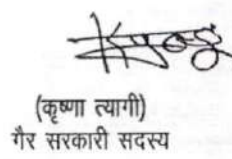 (कृष्णा त्यागी)
गैर सरकारी सदस्य